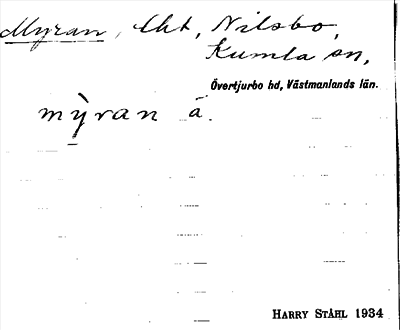 Myran, lht, Nilsbo,
Kumla sn,
Övertjurbo hd, Västmanlands län.
mỳran å.
HARRY STÅHL 1934